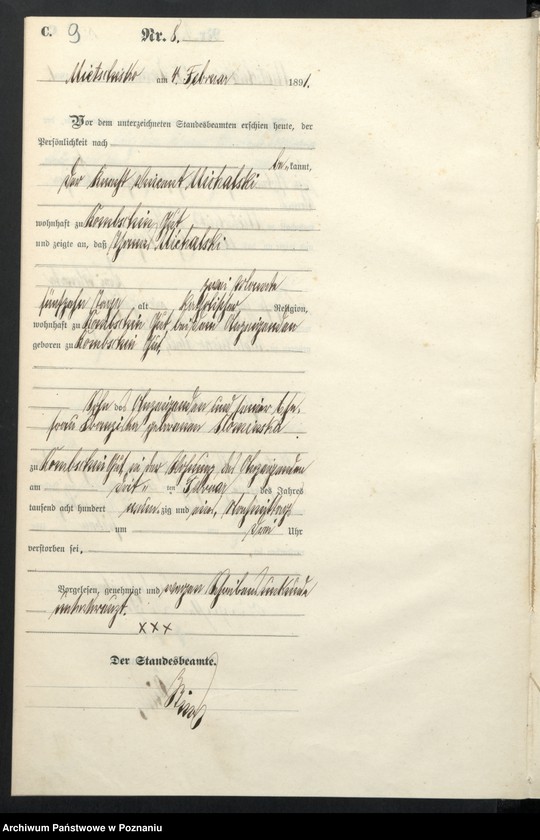 C. 9 Nr. 8.
am 4 Februar 1891.
Vor dem unterzeichneten Standesbeamten erschien heute, der
Persönlichkeit nach
be kannt,
der Knecht Vincent Michalski
wohnhaft zu Gut
und zeigte an, daß Thomas Michalski
zwei Monate
fünfzehn Tage alt katholischer Religion,
wohnhaft zu Gut bei dem Anzeigenden
geboren zu Gut,
Sohn des Anzeigenden und seiner Ehe-
frau geborenen
zu Gut, in der Wohnung des Anzeigenden
am ten Februar des Jahres
tausend acht hundert neun zig und eins, Nachmittags
um drei Uhr
verstorben sei.
Vorgelesen, genehmigt und wegen Schreibensunkunde
unterkreuzt.
XXX
Der Standesbeamte.
Archiwum Państwowe w Poznaniu